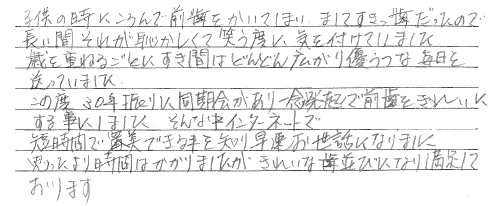 子供の時にころんで前歯をかいてしまい、ましてすきっ歯だったので
長い間それが恥かしくて笑う度に気を付けていました
歳を重ねるごとに、すき間はどんどん広がり憂うつな毎日を
送っていました
この度30年振りに同期会があり一念発起で前歯をきれいに
する事にしました そんな中インターネットで
短時間で審美できる事を知り早速お世話になりました
思ったより時間はかかりましたがきれいな歯並びになり満足して
おります